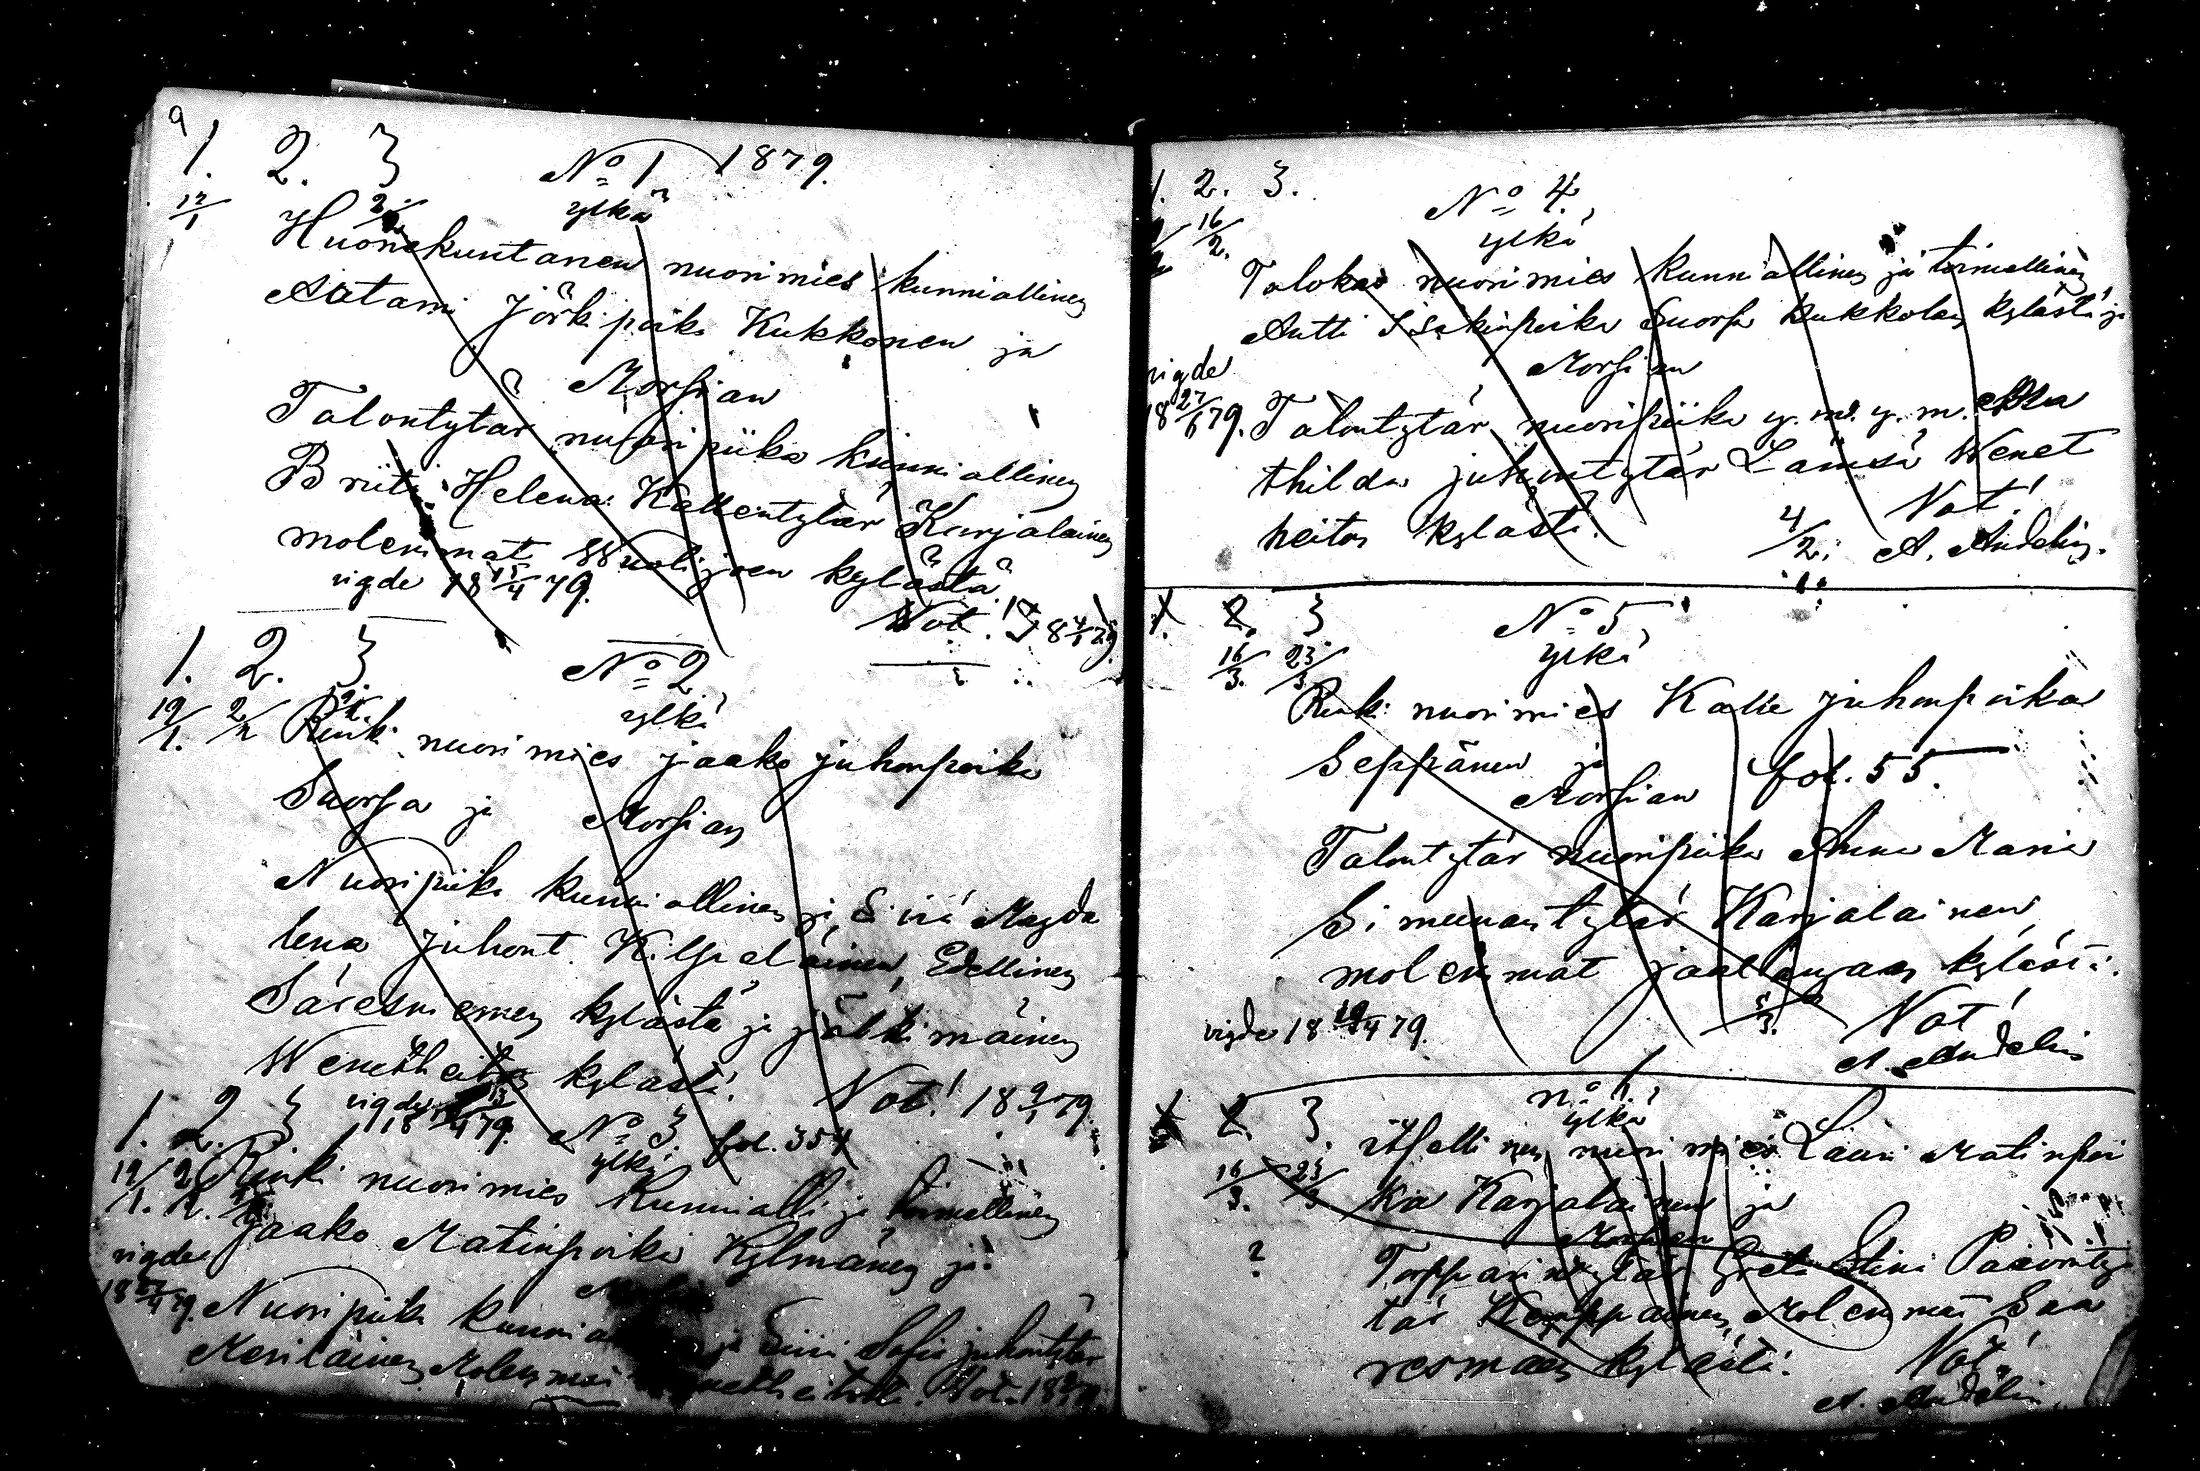 9
1. 2. 3 No 1 1879.
12/1 2/2 ylkä
Huonekuntanen nuorimies kunniallinen
Aatami Jörkinpoika Kukkonen ja
Morsian
Talontytär nuoripiika kunniallinen
Briita Helena Kallentytär Karjalainen
molemmat Wuolijoen kylästä
vigde 18 15/4 79.
Not!
1. 2. 3 No 2.
19/1. 2/2 ylkä
Renki nuorimies jaako juhonpoika
Suorsa ja Morsian
Nuoripiika kunniallinen ja Siviä Magda
lena juhont. Kilpeläinen, Edellinen
Säresniemen kylästä ja jälkimäinen
Wenetheiton kylästä.
Not! 18 9/1 79
vigde
1. 2. 3 No 3. fol. 354
19/1. 2/2. ylkä
Renki nuorimies kunnialli ja toimellinen
Jaako Matinpoika Kylmänen ja
vigde
Nuoripiika ja Siiri Sofia juhontytär
Meriläinen, Molemmat
Not.
1. 2. 3. No 4.
16/2. ylkä
Talokas nuorimies kunniallinen ja toimellinen
Antti Isakinpoika Suorsa Kukkolan kylästä ja
Morsian
vigde
18 27/6 79. Talontytär nuoripiika y. m. y. m.
thilda juhontytär Lämsä Wenet
heiton kylästä.
Not!
4/2. A. Andelin.
1. 2. 3 No 5.
16/3. 23/3. ylkä
Renki nuorimies Kalle Juhonpoika
Seppänen ja fol. 55.
Morsian
Talontytär nuoripiika Anna Maria
Simunantytär Karjalainen,
molemmat jaalangan kylästä.
vigde 18 79. Not!
A. Andelin
2. 3. no 6.
16/3. 23/3 ylkä
itsellinen nuorimies Lauri Matinpoi
ka Karjalainen ja
Morsian
?
Torpparintytär Greta Stina Paavonty
tär Kemppainen, Molemmat Saa
resmäen kylästä.
Not!
A. Andelin